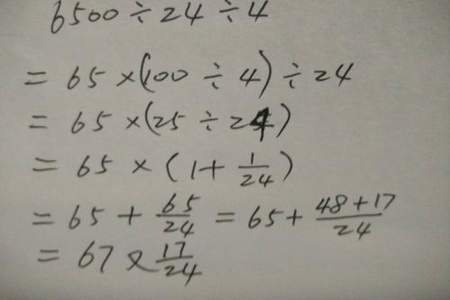 6500 ÷ 24 ÷ 4
= 65 × (100 ÷ 4) ÷ 24
= 65 × (25 ÷ 24)
= 65 × (1 + 1/24)
= 65 + 65/24 = 65 + (48 + 17)/24
= 67 17/24